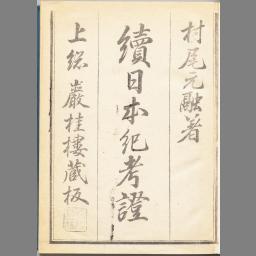 村尾元融著
續日本紀考證
上総巖桂樓蔵板